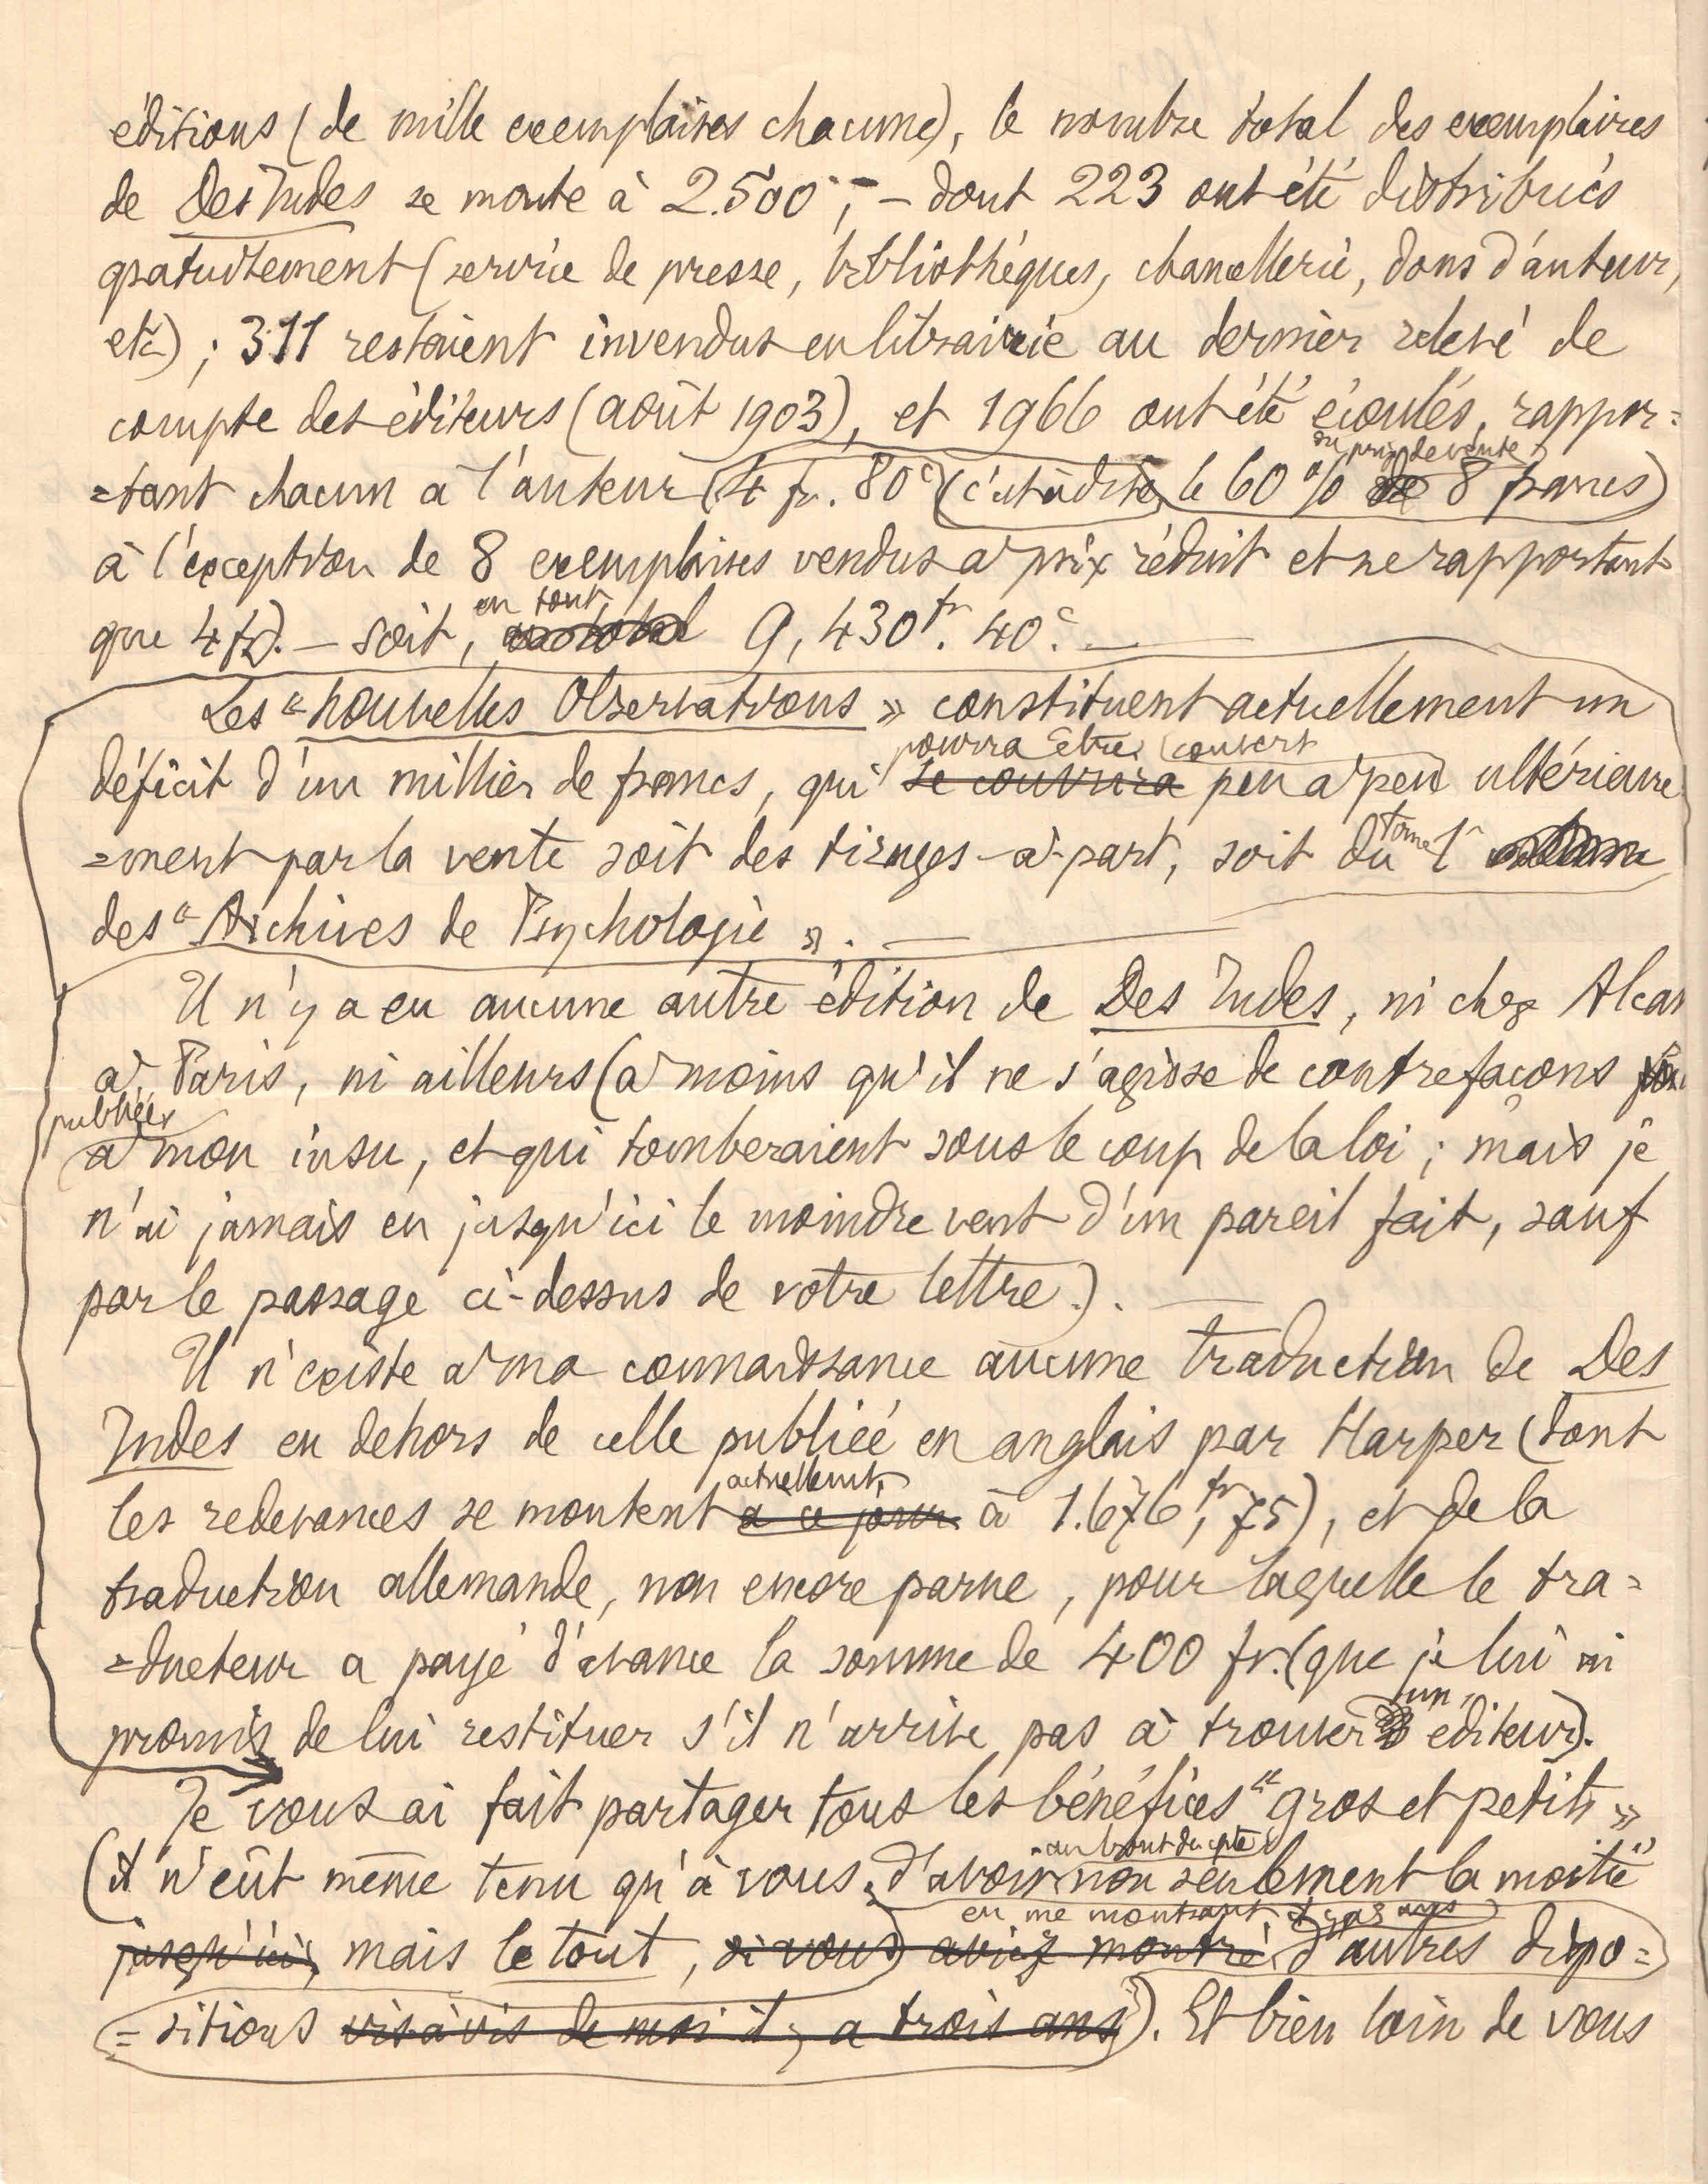 éditions (de mille exemplaires chacune), le nombre total des exemplaires
de Des Indes se monte à 2.500 ; – dont 223 ont été distribués
gratuitement (service de presse, bibliothèques, chancellerie, dons d'auteur,
etc) ; 311 restaient invendus en librairie au dernier relevé de
compte des éditeurs (août 1903), et 1966 ont été écoulés, rappor=
du prix de vente
=tant chacun à l'auteur (4 fr. 80c (c'est à dire, le 60 % de 8 francs)
à l'exception de 8 exemplaires vendus à prix réduit et ne rapportant
en tout,
que 4 fr). – Soit, au total 9,430 fr. 40c. —
Les « Nouvelles Observations » constituent actuellement un
pourra être couvert
déficit d'un millier de francs, qui se couvrira peu à peu ultérieure
tome
=ment par la vente soit des tirages-à-part, soit du I
des « Archives de Psychologie ». —
Il n'y a eu aucune autre édition de Des Indes, ni chez Alcan
à Paris, ni ailleurs (à moins qu'il ne s'agisse de contrefaçons
publiées
à mon insu, et qui tomberaient sous le coup de la loi ; mais je
n'ai jamais eu jusqu'ici le moindre vent d'un pareil fait, sauf
par le passage ci-dessus de votre lettre). —
Il n'existe à ma connaissance aucune traduction de Des
Indes en dehors de celle publiée en anglais par Harper (dont
actuellement,
les redevances se montent à ce jour à 1.676 fr, 75), et de la
traduction allemande, non encore parue, pour laquelle le tra=
=ducteur a payé d'avance la somme de 400 fr. (que je lui ai
un
promis de lui restituer s'il n'arrive pas à trouver éditeur).
Je vous ai fait partager tous les bénéfices « gros et petits »
au bout du cpte
(il n'eût même tenu qu'à vous, d'avoir non seulement la moitié
en me montrant il y a 3 ans
jusqu'ici, mais le tout, si vous aviez montré d'autres dispo=
=sitions vis à vis de moi il y a trois ans). Et bien loin de vous